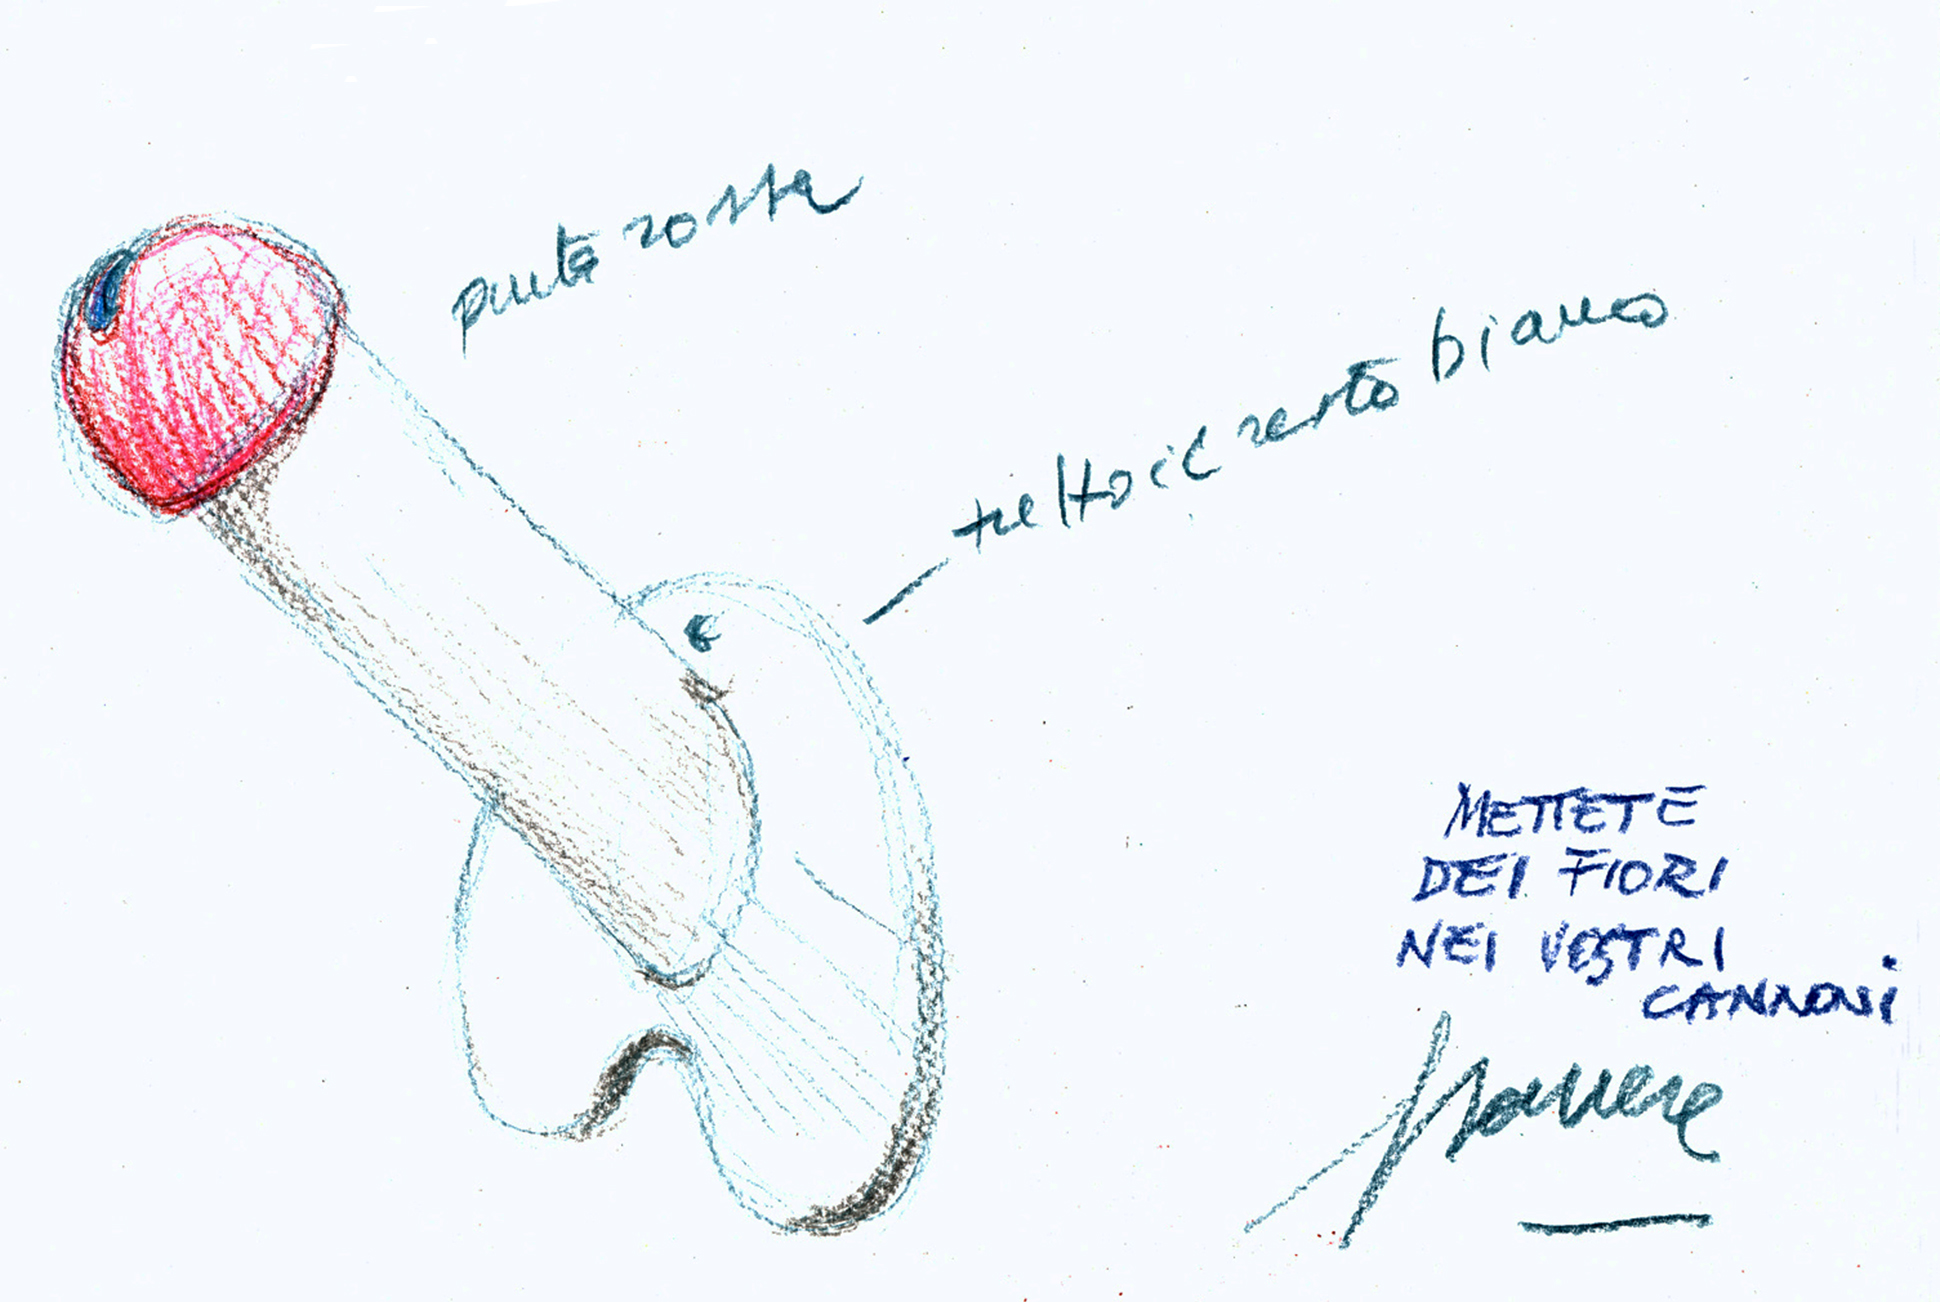 punta rossa
tutto il resto bianco
METTETE
DEI FIORI
NEI VESTRI
CANNONI